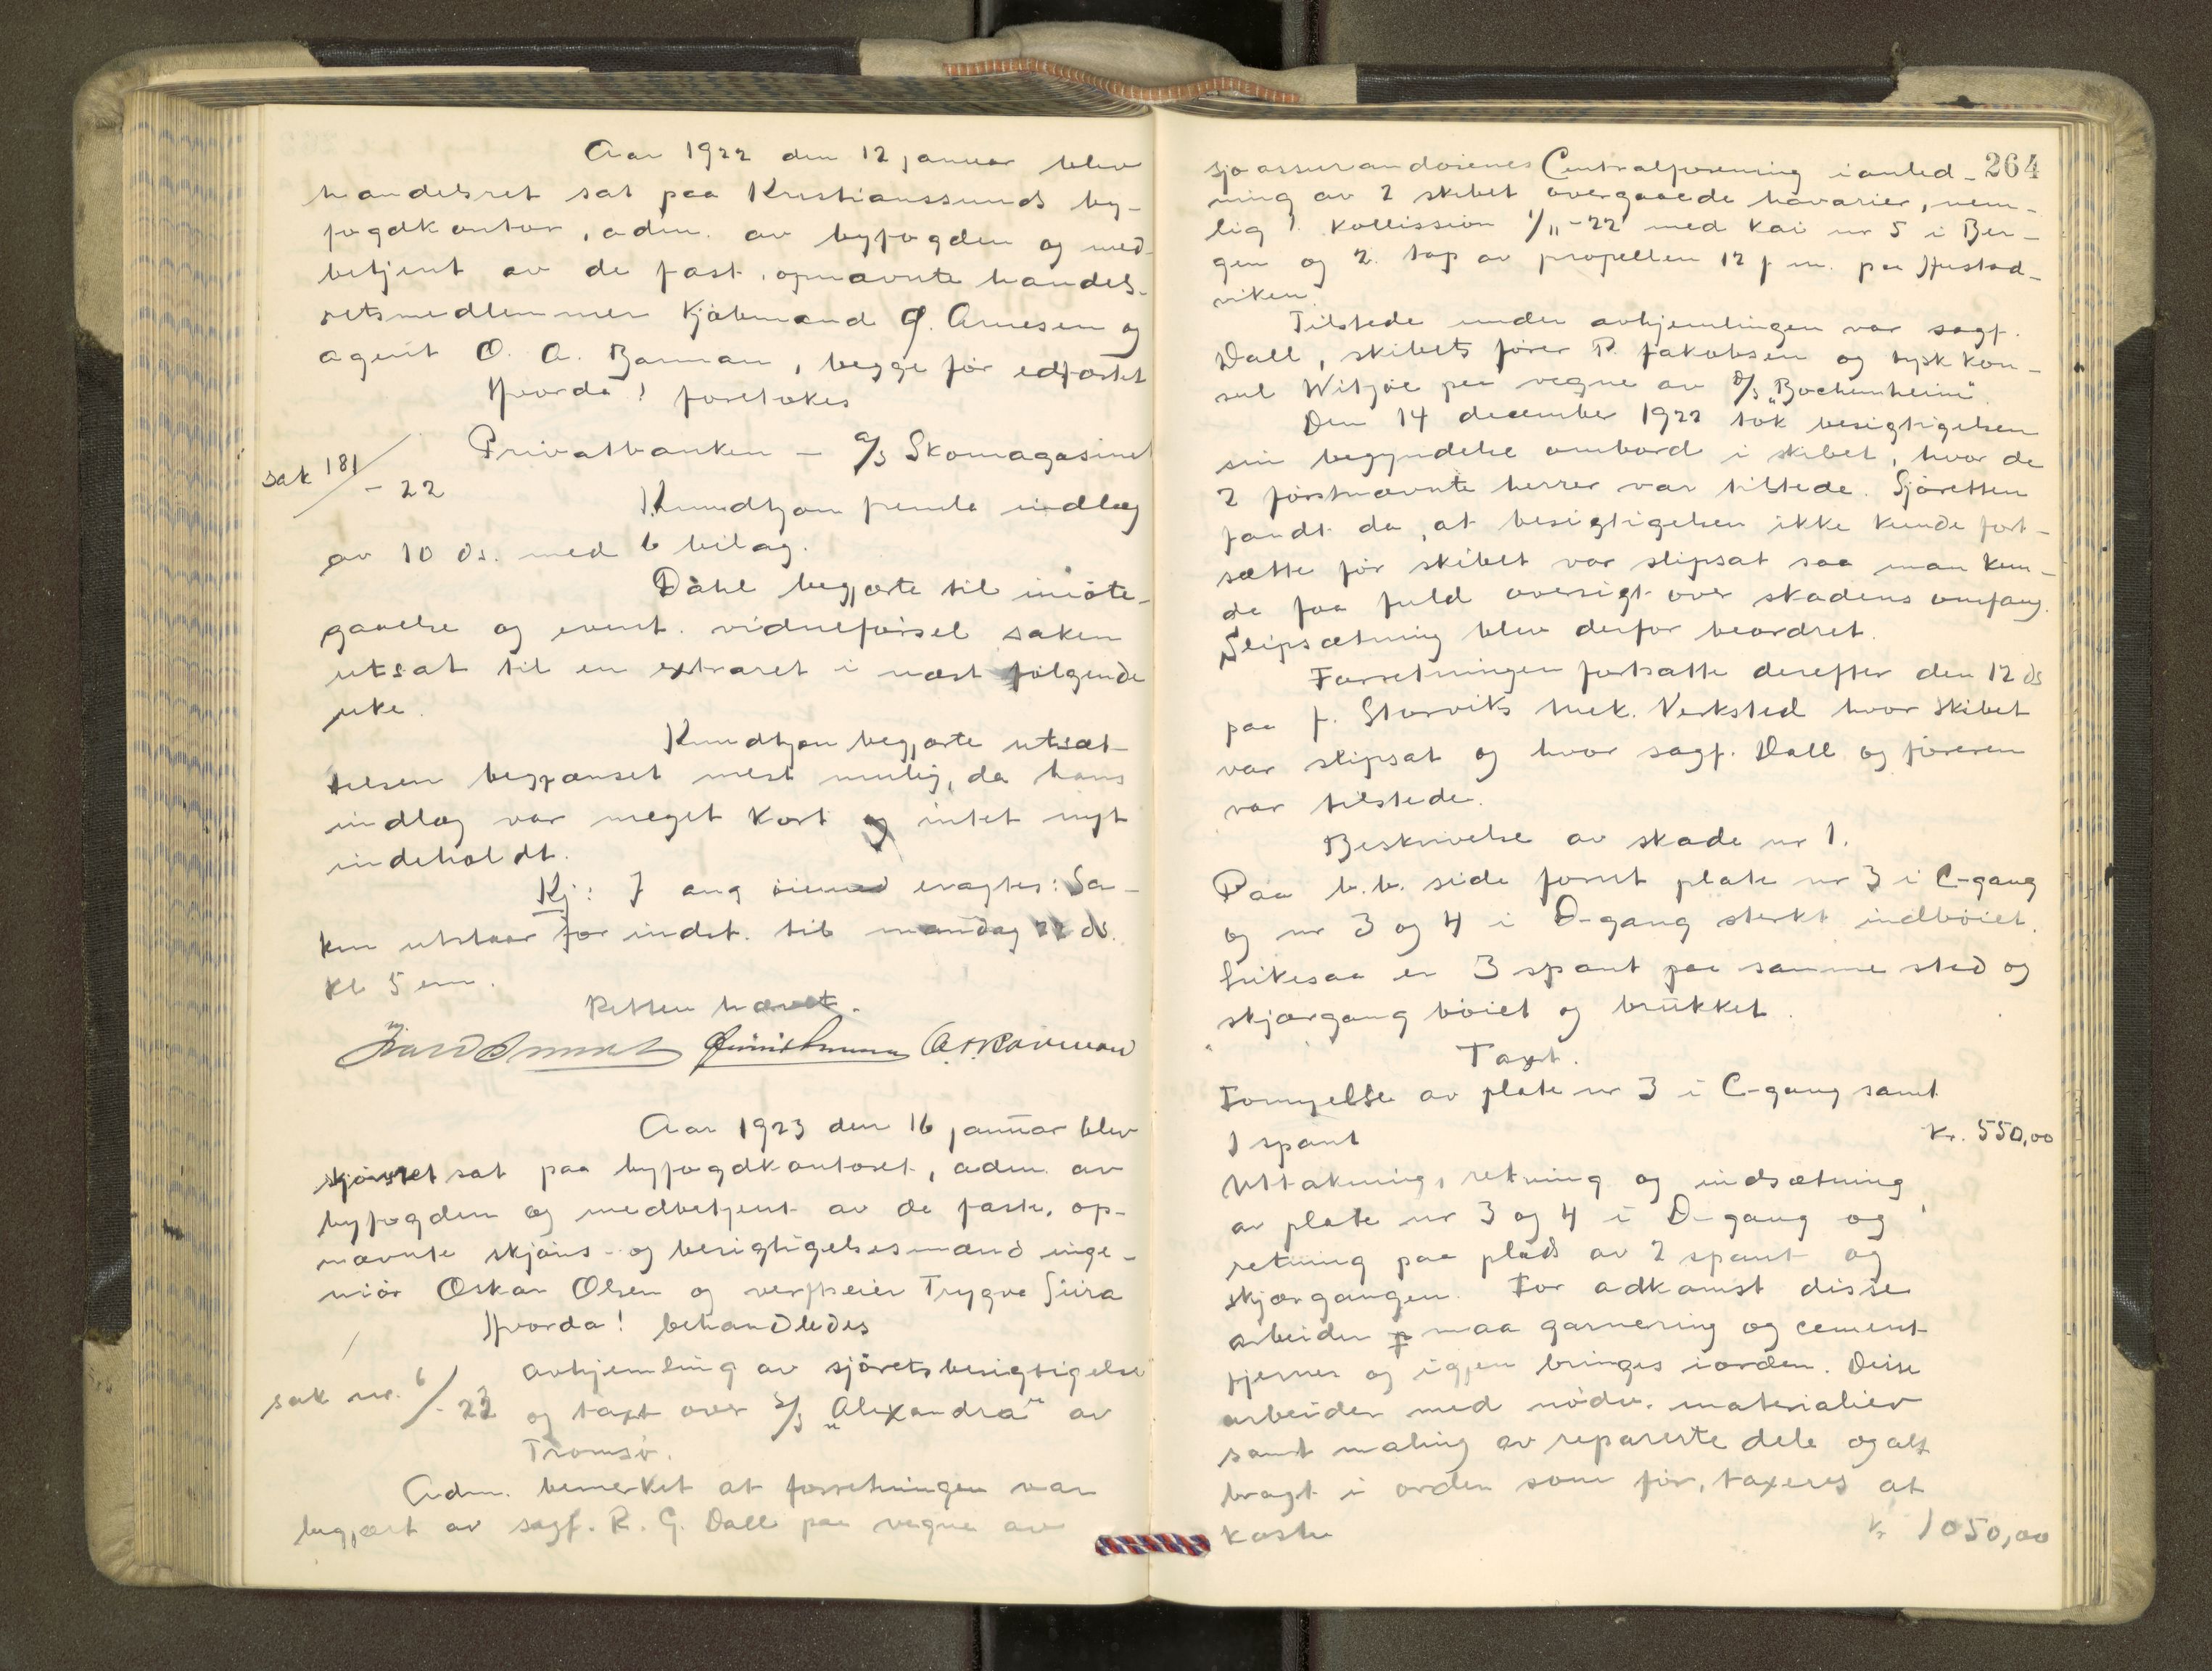 Aar 1922 den 12 januar blev
handelsret sat paa Kristianssunds by-
fogdkontor, adm. av byfogden og med-
betjent av de fast. opnævnte handels-
retsmedlemmer Kjøbmand Q. Arnesen og
agent O. A. Barman, begge før edfæstet
Hvorda! foretokes
sak 181/-22
Privatbanken - A/S Skomagasinet
Knudtzon fremla indlæg
av 10 ds. med 6 bilag.
Dahl begjærte til imøte-
gaaelse og event. vidneførsel saken
utsat til en extraret i næst følgende
uke.
Knudtzon begjærte utsæt-
telsen begrænset mest mulig, da hans
indlæg var meget kort og intet nyt
indeholdt.
Kj: 7 ang øiemed eragtes: Sa-
ken utstaar for indst. til mandag 22 ds.
kl 5 em.
Retten hævet.
O. A. Barman
Aar 1923 den 16 januar blev
sjøret sat paa byfogdkontoret, adm. av
byfogden og medbetjent av de faste, op-
nævnte skjøns- og besigtigelsesmænd inge-
niør Oskar Olsen og verftseier Trygve Giira
Hvorda! behandledes
sak nr. 6/-23
avhjemling av sjøretsbesigtigelse
og taxt over S/S "Alexandra" av
Tromsø.
Adm. bemerket at forretningen var
begjært av sagf. R. G. Dall paa vegne av
264
sjøassurandørenes Centralforening i anled-
ning av 2 skibet overgaaede havarier, nem-
lig 1. Kollission 1/11-22 med kai nr 5 i Ber-
gen og 2. tap av propellen 12 f. m. paa Hustad-
viken.
Tilstede under avhjemlingen var sagf.
Dall, skibets fører P. Jakobsen og tysk kon-
sul Witzøe paa vegne av D/S "Bochenheim".
Den 14 december 1922 tok besigtigelsen
sin begyndelse ombord i skibet, hvor de
2 førstnævnte herrer var tilstede. Sjøretten
fandt da, at besigtigelsen ikke kunde fort-
sætte før skibet var slipsat saa man kun-
de faa fuld oversigt over skadens omfang.
Slipsætning blev derfor beordret.
Forretningen fortsatte derefter den 12 ds
paa J. Storviks mek. Verksted hvor skibet
var slipsat og hvor sagf. Dall og føreren
var tilstede.
Beskrivelse av skade nr 1.
Paa b.b. side forut plate nr 3 i C-gang
og nr 3 og 4 i D-gang sterkt indbøiet.
Likesaa er 3 spant paa samme sted og
skjærgang bøiet og brukket.
Taxt.
Fornyelse av plate nr 3 i C-gang samt
1 spant kr. 550,00
Uttakning, retning og indsætning
av plate nr 3 og 4 i D-gang og
retning paa plads av 2 spant og
skjærgangen. For adkomst disse
arbeider maa garnering og cement
fjernes og igjen bringes i orden. Disse
arbeider med nødv. materialier
samt maling av reparerte dele og alt
bragt i orden som før, taxeres at
koste kr 1050,00